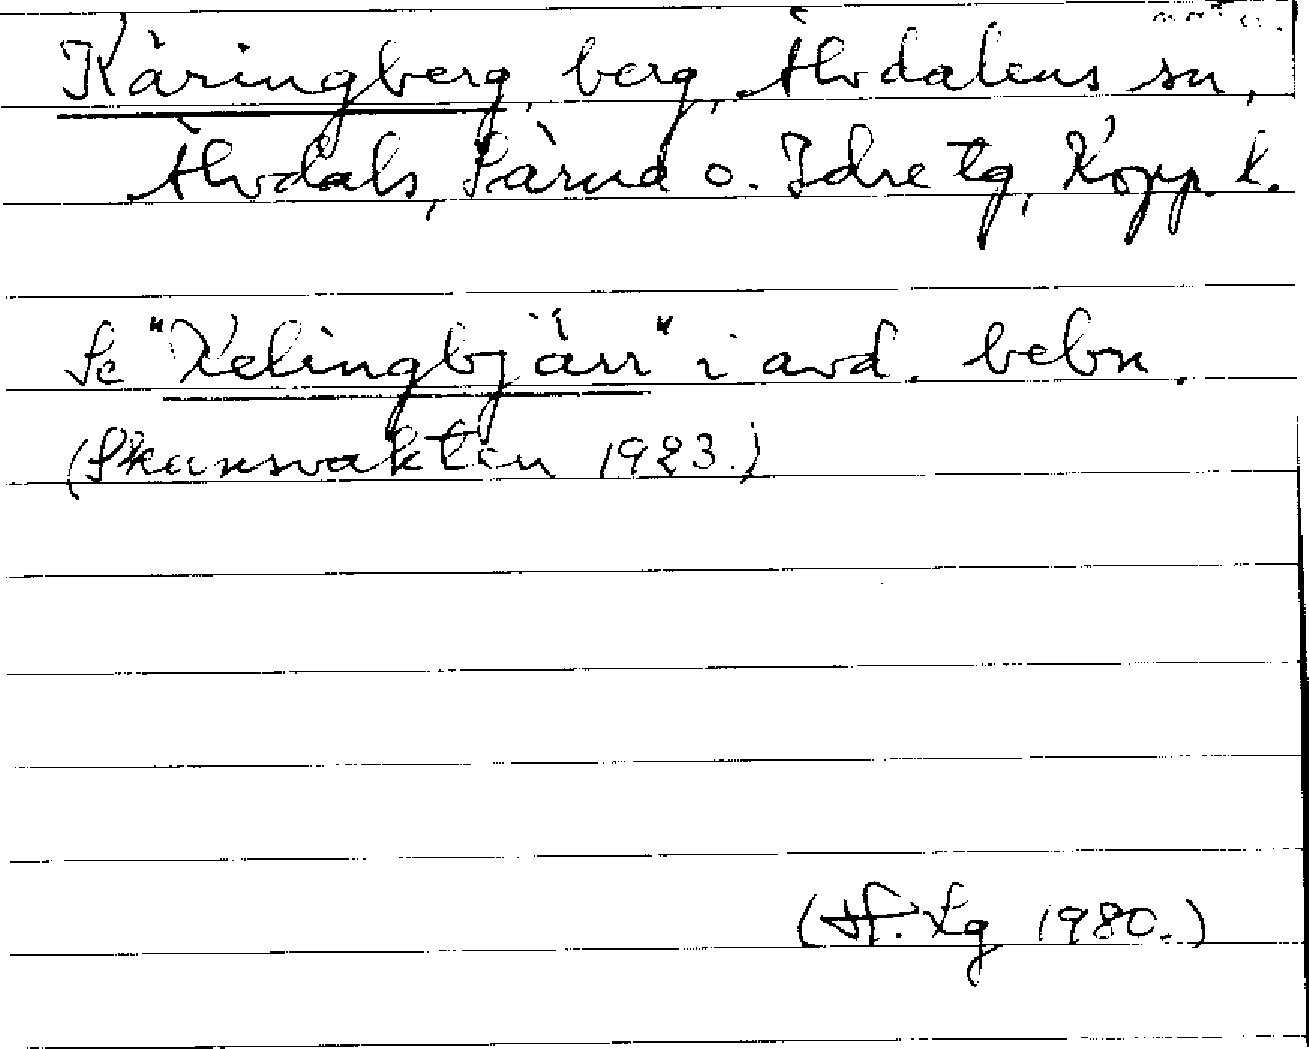 Käringberg, berg, Älvdalens sn,
Älvdals, Särna o. Idre tg, Kopp. l.
Se "Kelingbjärr" i avd. bebn.
(Skansvakten 1923.)
(H. Lg 1980.)